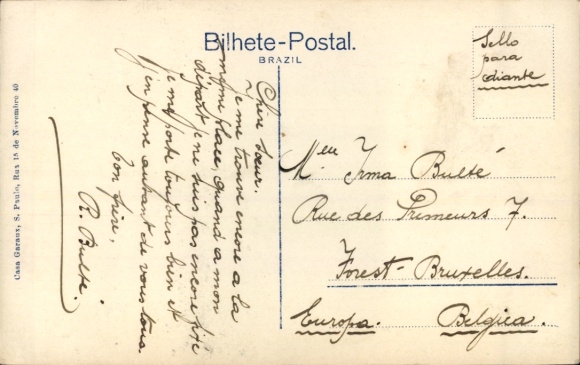 Bilhete-Postal.
BRAZIL
Sello
para
diante
Chère soeur.
Je me trouve encore a la
même place, quand a mon
départ je ne suis pas encore fixé
je me porte toujours bien et
j'en pense autant de vous tous
bon frère,
R. Bulté.
Melle Irma Bulté
Rue des Primeurs 7.
Forest-Bruxelles.
Europa. Belgica.
Casa Garaux, S. Paulo, Rua 15 de Novembro 40